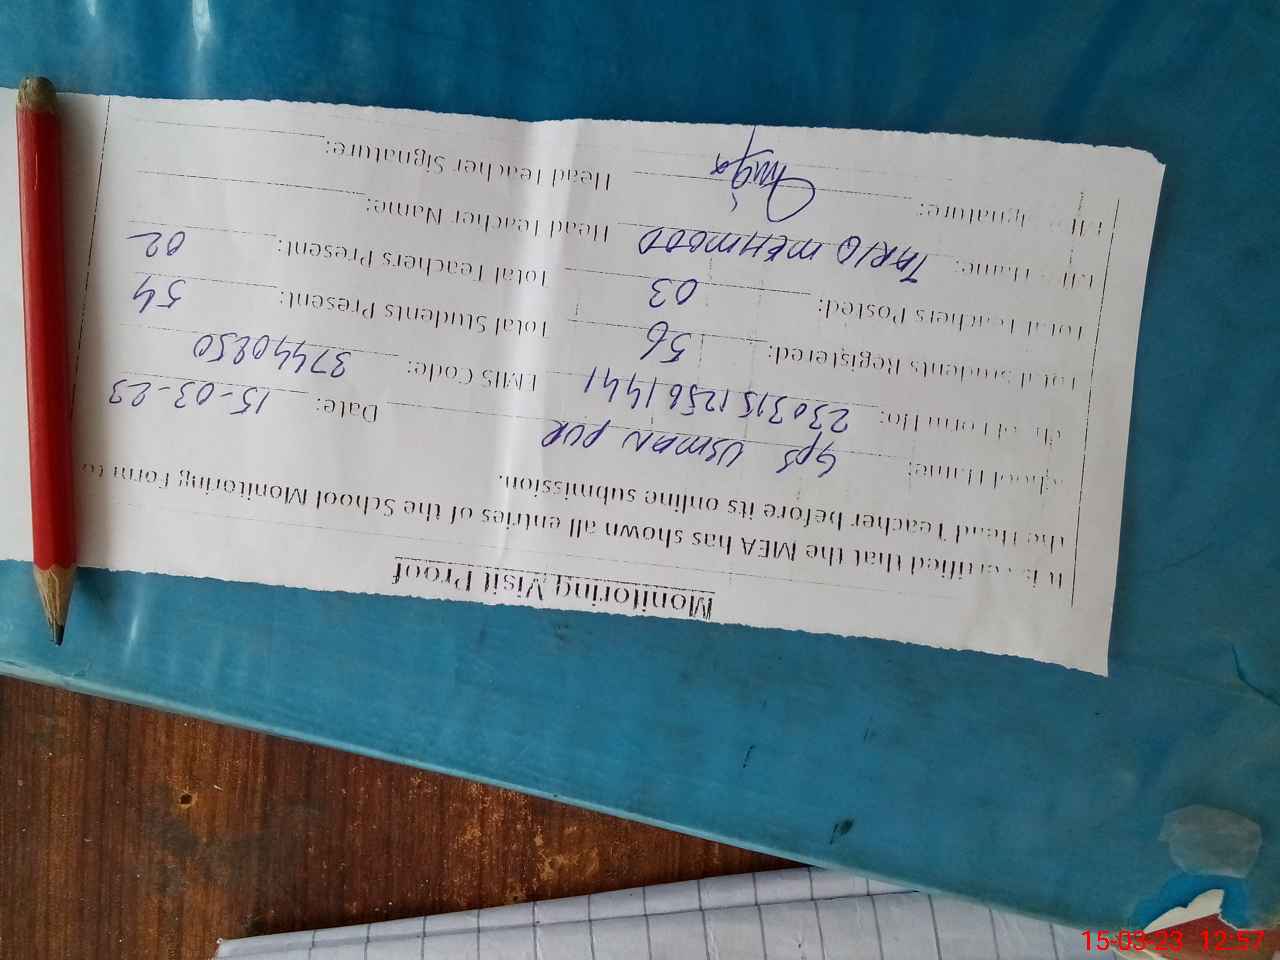 Monitoring Visit Proof
It is certified that the MEA has shown all entries of the School Monitoring Form to
the Head Teacher before its online submission.
School Name: GPS USMAN PUR Date: 15-03-23
Form No: 23031512561441 EMIS Code: 37440250
Total Students Registered: 56 Total Students Present: 54
Total Teachers Posted: 03 Total Teachers Present: 02
Name: TARIQ MEHMOOD Head Teacher Name:
Signature: Head Teacher Signature:
15-03-23 12:57